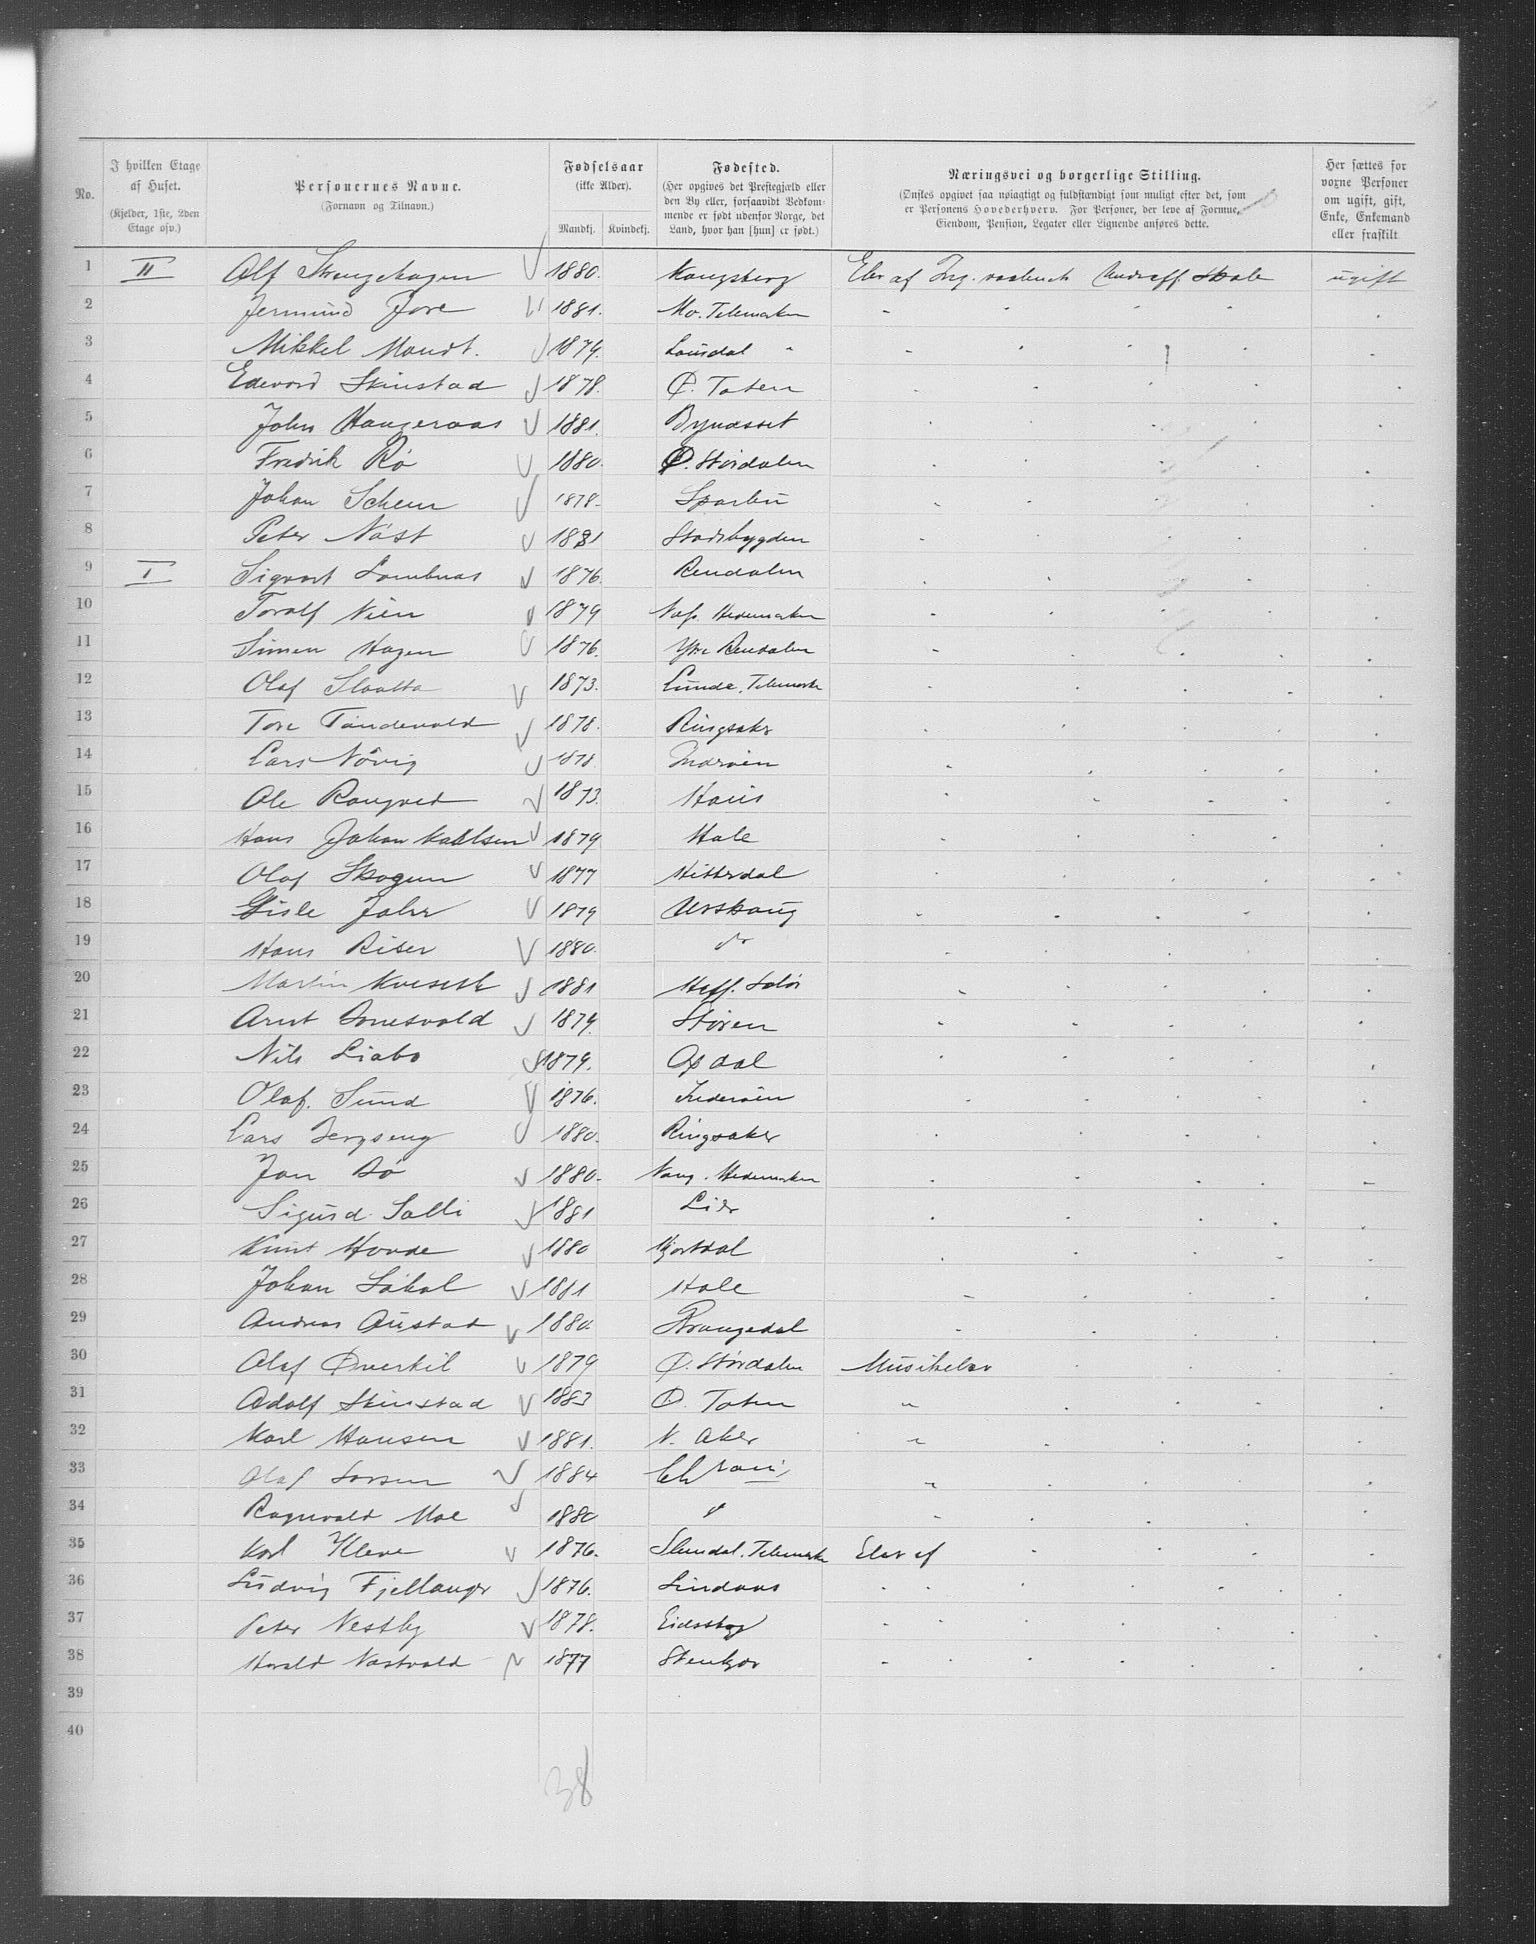 No.
I hvilken Etage af Huset.
(Kjelder, 1ste, 2den Etage osv.)
Personernes Navne.
(Fornavn og Tilnavn.)
Fødselsaar
(ikke Alder).
Mandkj. Kvindekj.
Fødested.
(Her opgives det Prestegjæld eller
den By eller, forsaavidt Vedkom-
mende er født udenfor Norge, det
Land, hvor han [hun] er født.)
Næringsvei og borgerlige Stilling.
(Ønskes opgivet saa nøiagtigt og fuldstændigt som muligt efter det, som
er Personens Hovederhverv. For Personer, der leve af Formue,
Eiendom, Pension, Legater eller Lignende anføres dette.
Her sættes for
voxne Personer
om ugift, gift,
Enke, Enkemand
eller fraskilt
1 II Alf 1880. Kongsberg Elev af Ing. Underoff. Skole ugift
2 Jermund Jore 1881. Mo. Telemarken
3 Mikkel Mandt. 1879. "
4 Edevard Skinstad 1878. Ø. Toten
5 John Haugeraas 1881. Bynæsset
6 Fredrik Rø 1880. Ø. Størdalen
7 Johan Schem 1878. Sparbu
8 Peter Nøst 1881 Stadsbygden
9 I Sigvart Lombnæs 1876. Rendalen
10 Toralf 1879 Hedemarken
11 Simen Hagen 1876. Ytre Rendalen
12 Olaf Slaatta 1873. Lunde. Telemark
13 Tore Tandevold 1878. Ringsaker
14 Lars Nøvig 1878 Inderøen
15 Ole 1873. Haus
16 Hans Johan Karlsen 1879 Hole
17 Olaf Skogen 1877 Hitterdal
18 Gisle Jahr 1879 Urskoug
19 Hans Riser 1880. do
20 Martin 1881 Hoff. Solør
21 Arnt 1879. Støren
22 Nils Liabø 1879. Opdal
23 Olaf. Sund 1876. Inderøen
24 Lars Bergseng 1880. Ringsaker
25 Jon Bø 1880. Vang. Hedemarken
26 Sigurd Solli 1881 Lier
27 Knut Hovde 1880 Hjartdal
28 Johan Løkal 1881 Hole
29 Andreas Austad 1880. Drangedal
30 Olaf Øverkil 1879 Ø. Størdalen Musikelev
31 Adolf Skinstad 1883 Ø. Toten "
32 Karl Hansen 1881. V. Aker "
33 Olaf Larsen 1884 Chrania "
34 Ragnvald Moe 1880 do
35 Karl Kleve 1876. Telemark Elev af
36 Ludvig Fjellanger 1876. Lindaas
37 Peter Nestby 1878. Eidsberg
38 Harald Nastvold 1877 Stenkjær
39
40
38